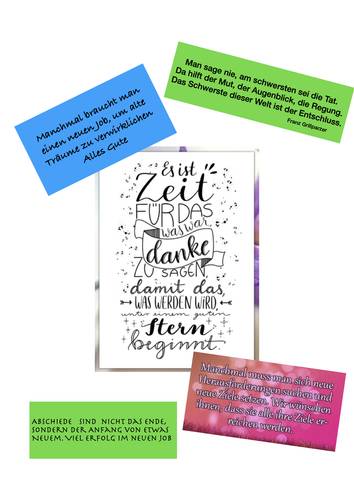 Man sage nie, am schwersten sei die Tat.
Da hilft der Mut, der Augenblick, die Regung.
Das Schwerste dieser Welt ist der Entschluss.
Franz Grillparzer
Manchmal braucht man
einen neuen Job, um alte
Träume zu verwirklichen
Alles Gute
Es ist
Zeit
FÜR DAS
was war
danke
ZU SAGEN,
damit das,
WAS WERDEN WIRD,
unter einem guten
Stern
beginnt.
Manchmal muss man sich neue
Herausforderungen suchen und
neue Ziele setzen. Wir wünschen
ihnen, dass sie alle ihre Ziele er-
reichen werden.
ABSCHIEDE SIND NICHT DAS ENDE,
SONDERN DER ANFANG VON ETWAS
NEUEM. VIEL ERFOLG IM NEUEN JOB